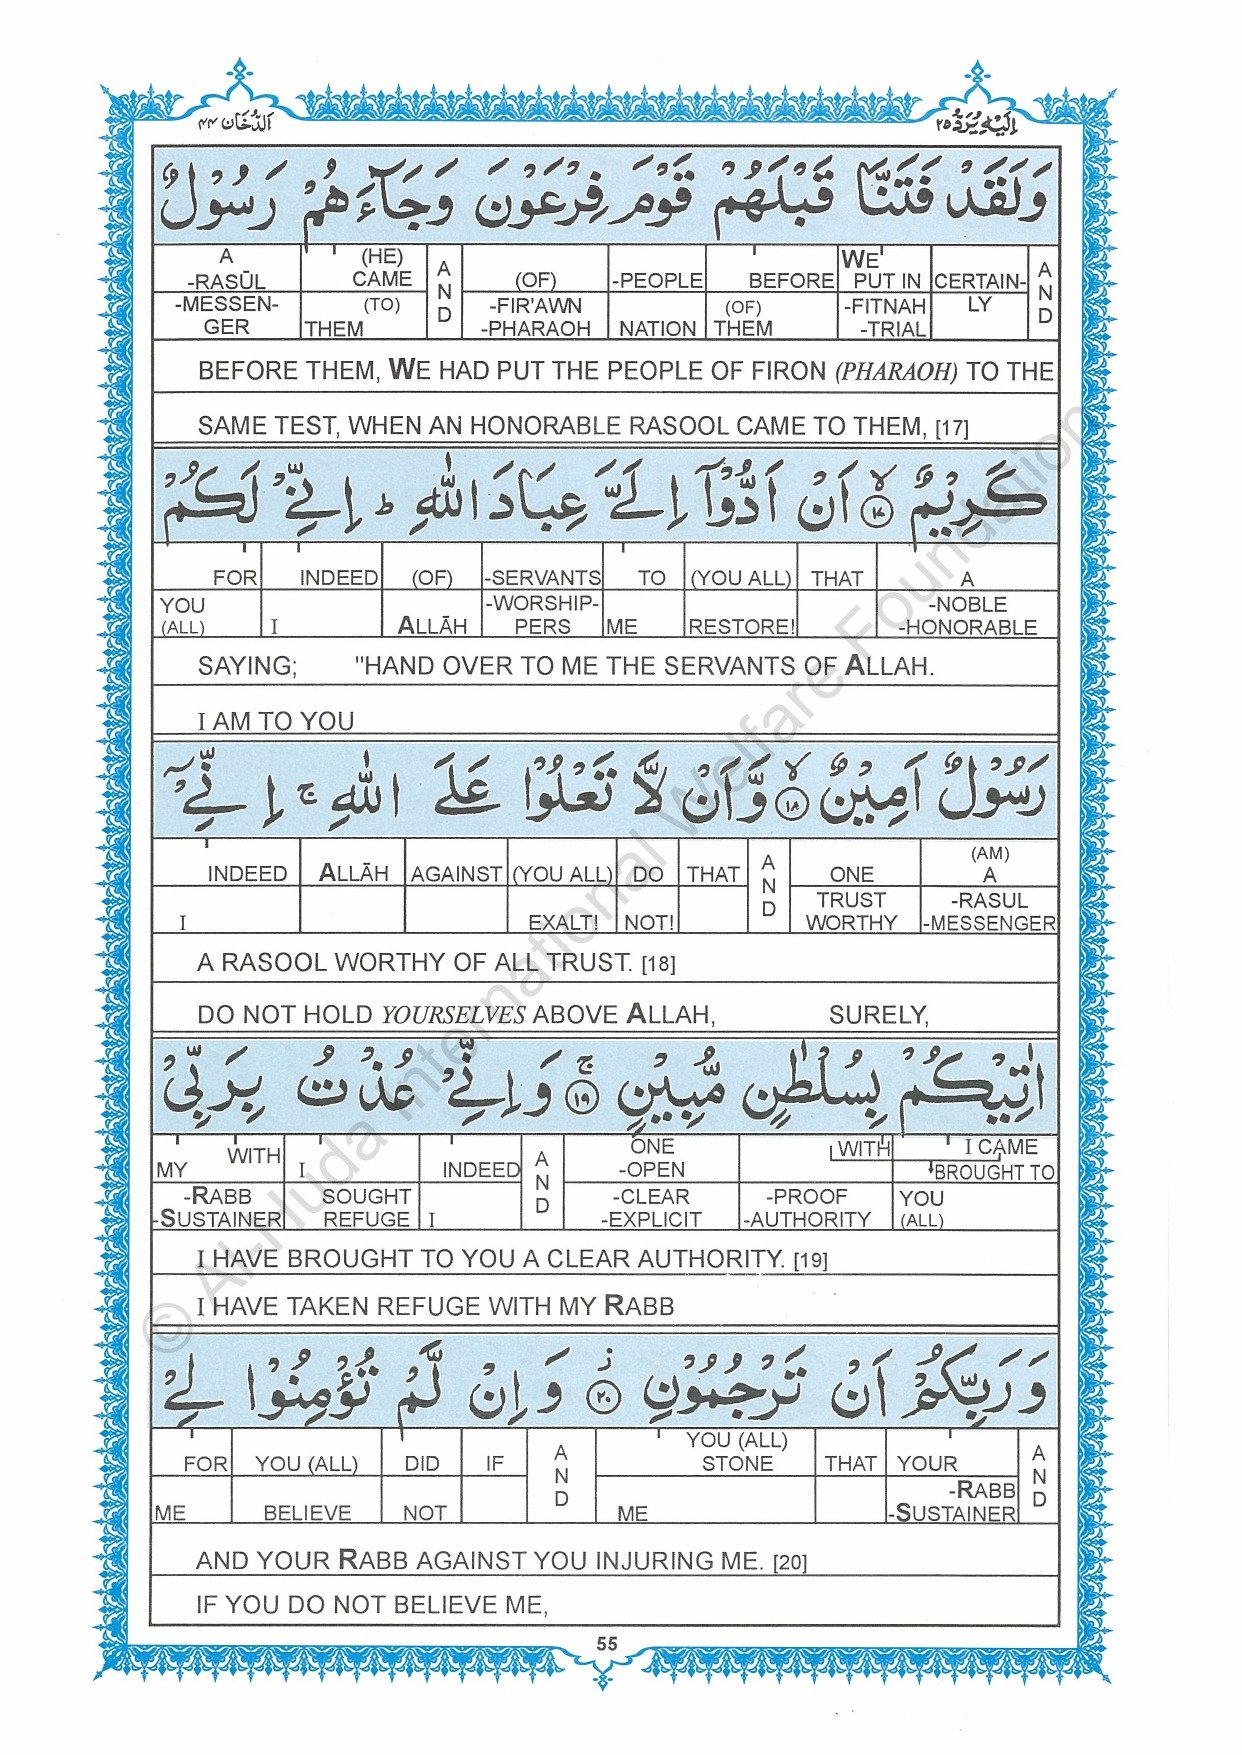 اَلدُّخَان ۴۴
اِلَيْهِ يُرَدُّ ۲۵
وَلَقَدْ فَتَنَّا قَبْلَهُمْ قَوْمَ فِرْعَوْنَ وَجَآءَهُمْ رَسُوْلٌ
A (HE) A N D (OF) -PEOPLE BEFORE WE PUT IN CERTAIN- A N D
-RASŪL CAME
-MESSEN- (TO) -FIR'AWN (OF) -FITNAH LY
GER THEM -PHARAOH NATION THEM -TRIAL
BEFORE THEM, WE HAD PUT THE PEOPLE OF FIRON (PHARAOH) TO THE
SAME TEST, WHEN AN HONORABLE RASOOL CAME TO THEM, [17]
كَرِيْمٌ ۙ ۱۷ اَنْ اَدُّوْٓا اِلَيَّ عِبَادَ اللّٰهِ ؕ اِنِّيْ لَكُمْ
FOR INDEED (OF) -SERVANTS TO (YOU ALL) THAT A
YOU -WORSHIP- -NOBLE
(ALL) I ALLĀH PERS ME RESTORE! -HONORABLE
SAYING; "HAND OVER TO ME THE SERVANTS OF ALLAH.
I AM TO YOU
رَسُوْلٌ اَمِيْنٌ ۙ ۱۸ وَّاَنْ لَّا تَعْلُوْا عَلَى اللّٰهِ ۚ اِنِّيْٓ
INDEED ALLĀH AGAINST (YOU ALL) DO THAT A N D ONE (AM) A
TRUST -RASUL
I EXALT! NOT! WORTHY -MESSENGER
A RASOOL WORTHY OF ALL TRUST. [18]
DO NOT HOLD YOURSELVES ABOVE ALLAH, SURELY,
اٰتِيْكُمْ بِسُلْطٰنٍ مُّبِيْنٍ ۚ ۱۹ وَاِنِّيْ عُذْتُ بِرَبِّيْ
WITH ONE WITH I CAME
MY I INDEED A N D -OPEN BROUGHT TO
-RABB SOUGHT -CLEAR -PROOF YOU
-SUSTAINER REFUGE I -EXPLICIT -AUTHORITY (ALL)
I HAVE BROUGHT TO YOU A CLEAR AUTHORITY. [19]
I HAVE TAKEN REFUGE WITH MY RABB
وَرَبِّكُمْ اَنْ تَرْجُمُوْنِ ۡ ۲۰ وَاِنْ لَّمْ تُؤْمِنُوْا لِيْ
YOU (ALL)
FOR YOU (ALL) DID IF A N D STONE THAT YOUR A N D
-RABB
ME BELIEVE NOT ME -SUSTAINER
AND YOUR RABB AGAINST YOU INJURING ME. [20]
IF YOU DO NOT BELIEVE ME,
55
© Al-Huda International Welfare Foundation